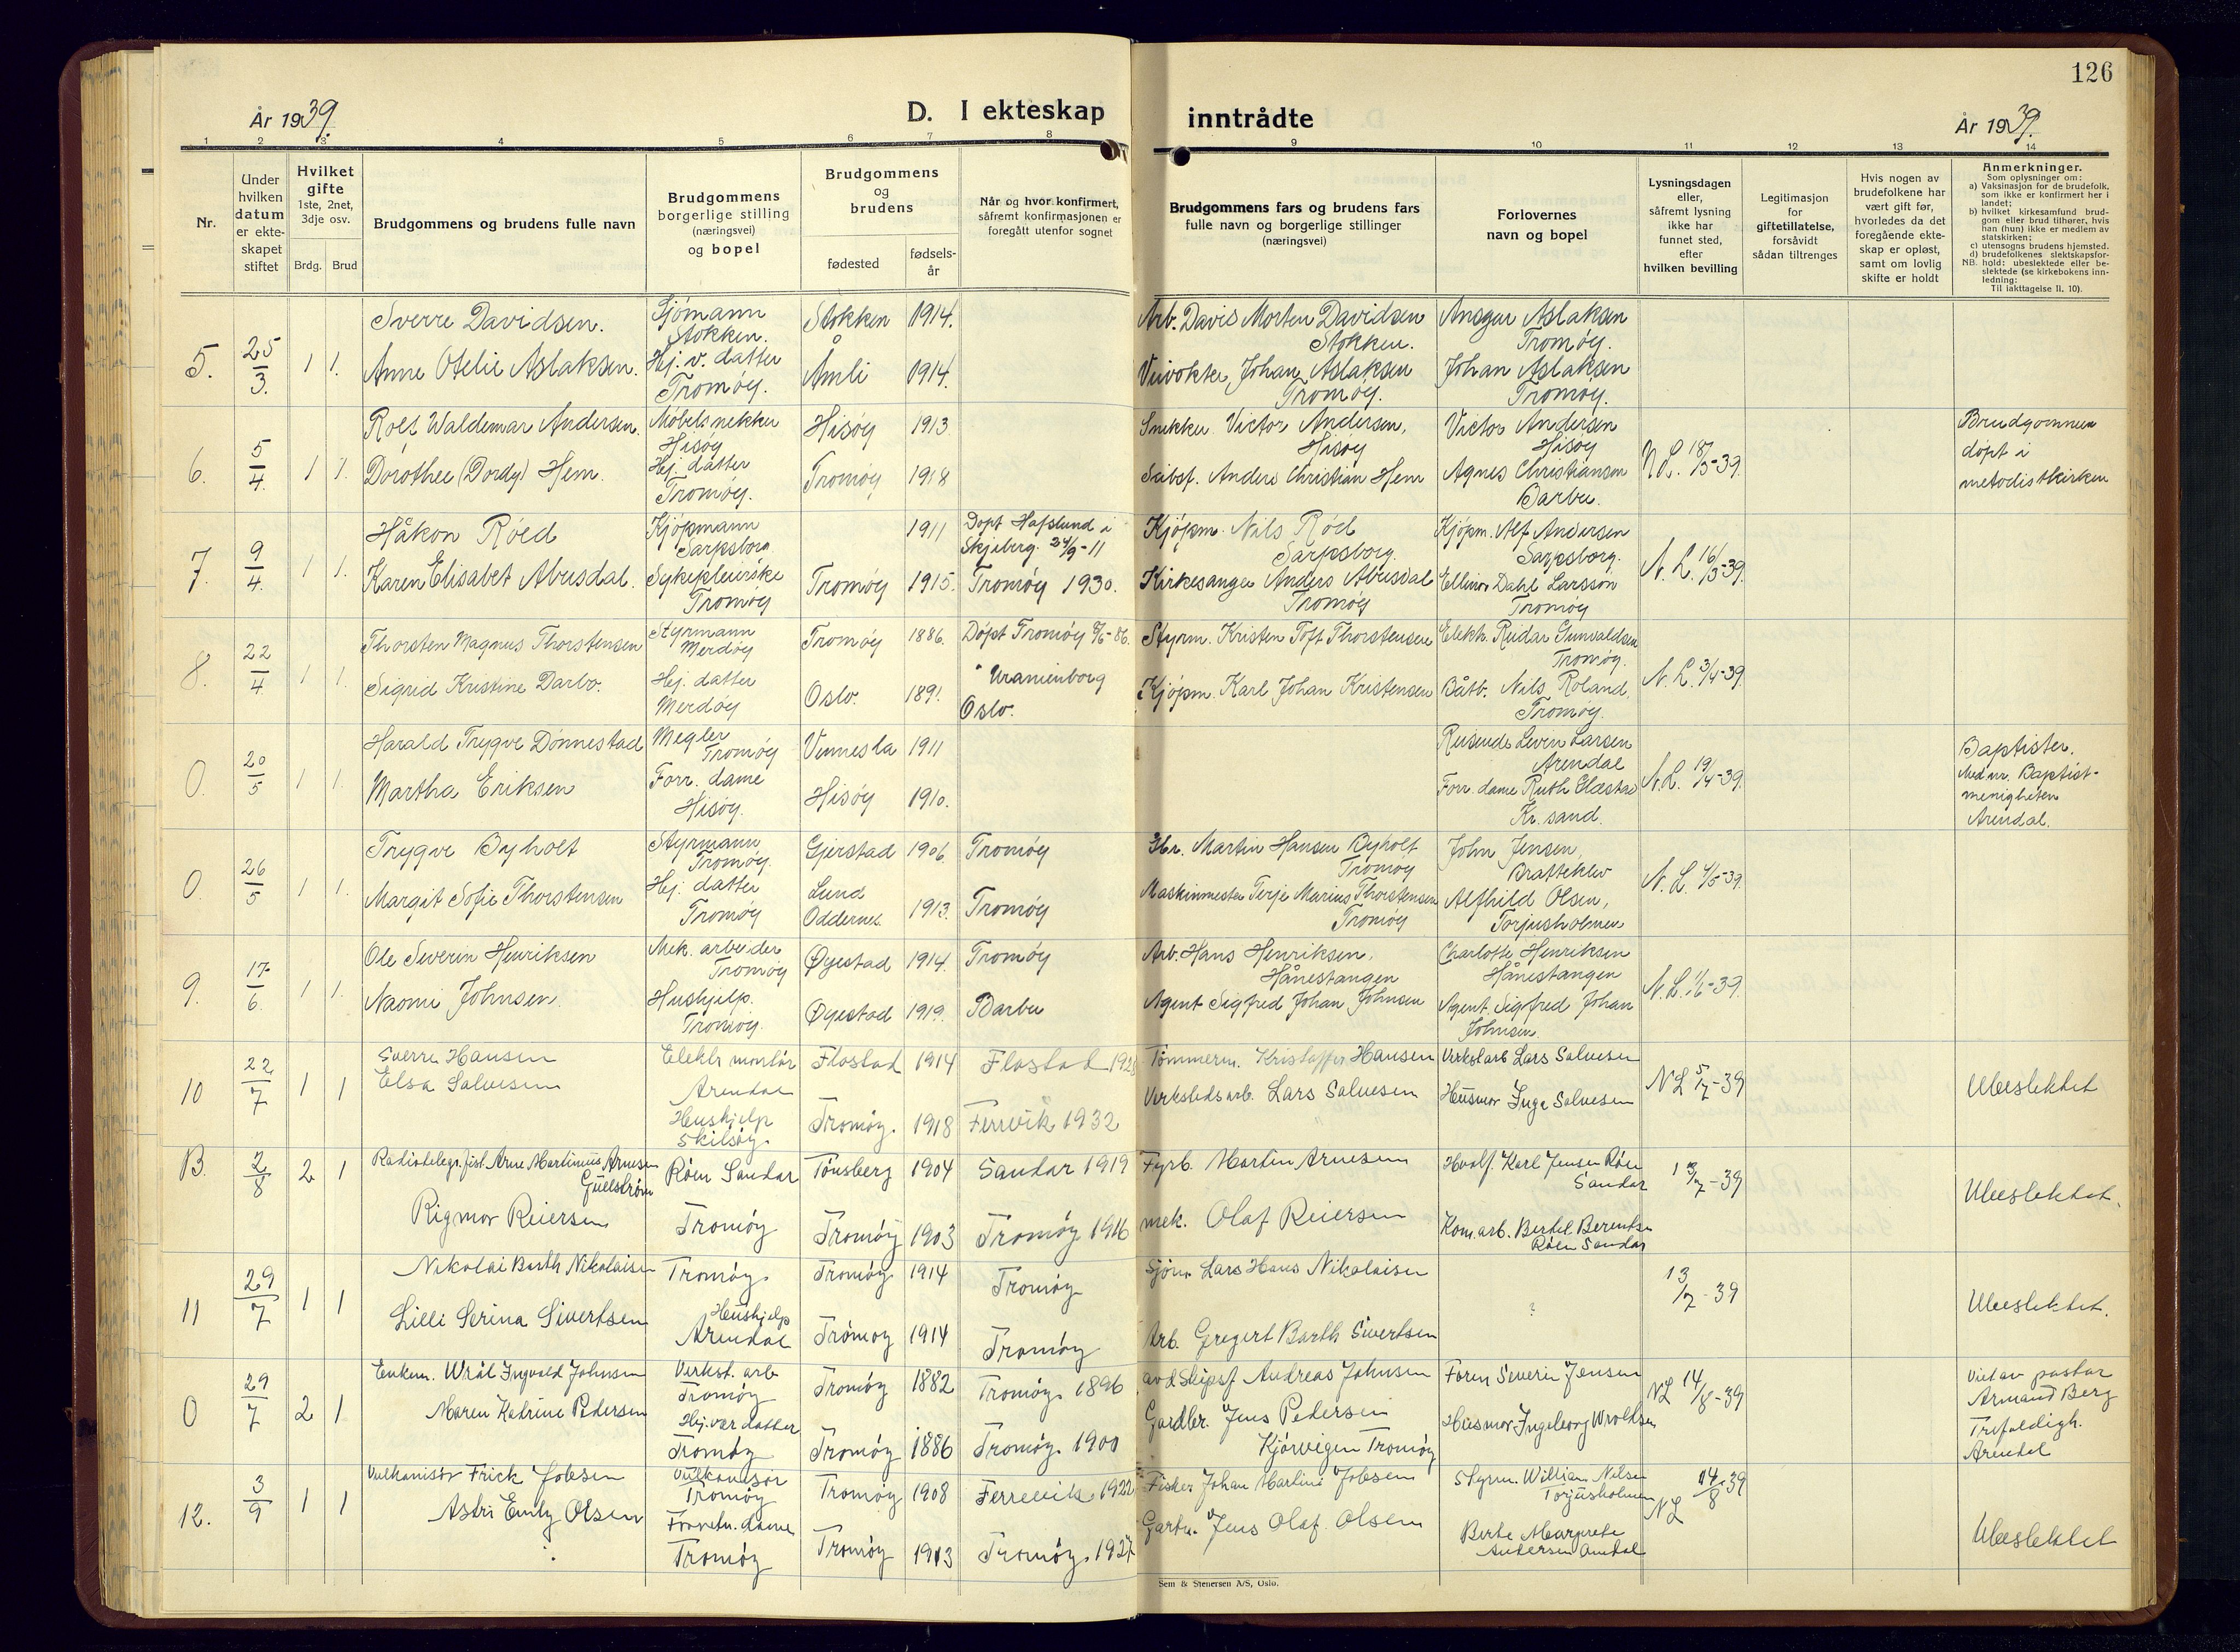 126
År 1939.
D. I ekteskap inntrådte
År 1939.
1 2 3 4 5 6 7 8 9 10 11 12 13 14
Nr.
Under hvilken datum er ekteskapet stiftet
Hvilket gifte 1ste, 2net, 3dje osv.
Brdg. Brud
Brudgommens og brudens fulle navn
Brudgommens borgerlige stilling (næringsvei) og bopel
Brudgommens og brudens
fødested
fødselsår
Når og hvor konfirmert, såfremt konfirmasjonen er foregått utenfor sognet
Brudgommens fars og brudens fars fulle navn og borgerlige stillinger (næringsvei)
Forlovernes navn og bopel
Lysningsdagen eller, såfremt lysning ikke har funnet sted, efter hvilken bevilling
Legitimasjon for giftetillatelse, forsåvidt sådan tiltrenges
Hvis nogen av brudefolkene har vært gift før, hvorledes da det foregående ekteskap er opløst, samt om lovlig skifte er holdt
Anmerkninger.
Som oplysninger om:
a) Vaksinasjon for de brudefolk, som ikke er konfirmert her i landet;
b) hvilket kirkesamfund brudgom eller brud tilhører, hvis han (hun) ikke er medlem av statskirken;
c) utensogns brudens hjemsted.
d) brudefolkenes slektskapsforhold: ubeslektede eller beslektede (se kirkebokens innledning:
NB.
Til iakttagelse II, 10).
5. 25/3. 1 1. Sverre Davidsen. Sjømann Stokken. Stokken 1914. Arb. Davis Morten Davidsen Stokken. Ansgar Aslaksen Tromøy.
Anne Otelie Aslaksen. Hj. v. datter Tromøy. Åmli 1914. Johan Aslaksen Tromøy. Johan Aslaksen Tromøy.
6. 5/4. 1 1. Rolf Waldemar Andersen. Møbelsnekker Hisøy Hisøy 1913 Snekker Victor Andersen, Hisøy Victor Andersen Hisøy N.L. 18/3-39. Brudgommen døpt i metodistkirken
Dorothee (Dordy) Hem. Hj. datter Tromøy. Tromøy 1918 Anders Christian Hem Agnes Christiansen Barbu.
7. 9/4. 1 1. Håkon Røed Kjøpmann Sarpsborg 1911 Døpt Hafslund i Skjeberg. 24/9-11 Kjøpm. Nils Rød Sarpsborg. Kjøpm. Alf Andersen Sarpsborg. N.L. 16/3-39.
Karen Elisabet Abusdal. Sykepleierske Tromøy Tromøy 1915. Tromøy 1930. Kirkesanger Anders Abusdal Tromøy Ellinor Dahl Larsson Tromøy
8. 22/4 1 1. Thorsten Magnus Thorstensen Styrmann Merdøy Tromøy 1886. Døpt Tromøy Styrm. Kristen Toft Thorstensen Elektr. Reidar Gunvaldsen Tromøy. N.L. 3/4-39.
Sigrid Kristine Darbo. Hj. datter Merdøy Oslo. 1891. " Uranienborg Oslo. Kjøpm. Karl Johan Kristensen Båtb. Nils Roland, Tromøy.
0. 20/5 1 1. Harald Trygve Dønnestad Megler Tromøy Vennesla 1911 Reisende Leven Larsen Arendal N.L. 19/4-39. Baptister. Baptistmenigheten Arendal.
Martha Eriksen Forr. dame Hisøy. Hisøy 1910. Forr. dame Ruth Kr. sand.
0. 26/5 1 1. Trygve Byholt Styrmann Tromøy. Gjerstad 1906 Tromøy Martin Hansen Byholt Tromøy John Jensen, Bratteklev N.L. 4/5-39.
Margit Sofie Thorstensen Hj. datter Tromøy Lund Oddernes 1913. Tromøy Maskinmester Terje Marius Thorstensen Tromøy Alfhild Olsen, Torjusholmen
9. 17/6. 1 1. Ole Severin Henriksen Mek. arbeider Tromøy Øyestad 1914. Tromøy Arb. Hans Henriksen, Hånestangen Charlotte Henriksen Hånestangen N.L. 1/6-39.
Naomi Johnsen. Hushjelp. Tromøy. Øyestad 1919. Barbu Agent Sigfred Johan Johnsen Agent Sigfred Johan Johnsen
10 22/7 1 1 Sverre Hansen Elektr montør Arendal Flostad 1914 Flostad Tømmerm. Kristoffer Hansen Verkst.arb Lars Salvesen NL 5/7-39 Ubeslektet
Elsa Salvesen Hushjelp Skilsøy. Tromøy. 1918 Færvik 1932 Verkstedsarb. Lars Salvesen Husmor Inga Salvesen
B. 2/8 2 1 Radiotelegr.fist. Arne Martinius Arnesen Gullstrøm Røen Sandar Tønsberg 1904 Sandar 1919 Fyrb. Martin Arnesen Hvalf. Karl Jensen Røen Sandar 13/7-39 Ubeslektet.
Rigmor Reiersen Tromøy Tromøy 1903 Tromøy 1916 mek. Olaf Reiersen Kom.arb. Bertel Berentsen Røen Sandar
11 29/7 1 1 Nikolai Barth Nikolaisen Tromøy Tromøy 1914 Tromøy Sjøm Lars Hans Nikolaisen ? 13/7-39 Ubeslektet.
Lilli Serina Sivertsen Hushjelp Arendal Tromøy 1914 Tromøy Arb. Gregert Barth Sivertsen
0 29/7 2 1 Enkem. Wrål Ingvald Johnsen Verkst. arb Tromøy Tromøy 1882 Tromøy. 1896 avd Skipsf Andreas Johnsen Severin Jensen NL 14/8-39 Viet av pastor Armand Berg Trefoldigh. Arendal
Maren Katrine Pedersen Hj. vær. datter Tromøy Tromøy 1886 Tromøy. 1900 Gardbr. Jens Pedersen Kjørvigen Tromøy Husmor Ingeborg Wroldsen
12. 3/9 1 1 Vulkanisør Frick Jobsen Vulkanisør Tromøy Tromøy 1908 Færrevik. 1922 Fisker Johan Martin Jobsen Styrm. William Nilsen Torjusholmen NL 14/8-39 Ubeslektet
Astri Emly Olsen Forretn. dame Tromøy Tromøy 1913 Tromøy. 1927 Gartn. Jens Olaf Olsen Berte Margrete Andersen Arendal
Sem & Stenersen A/S, Oslo.